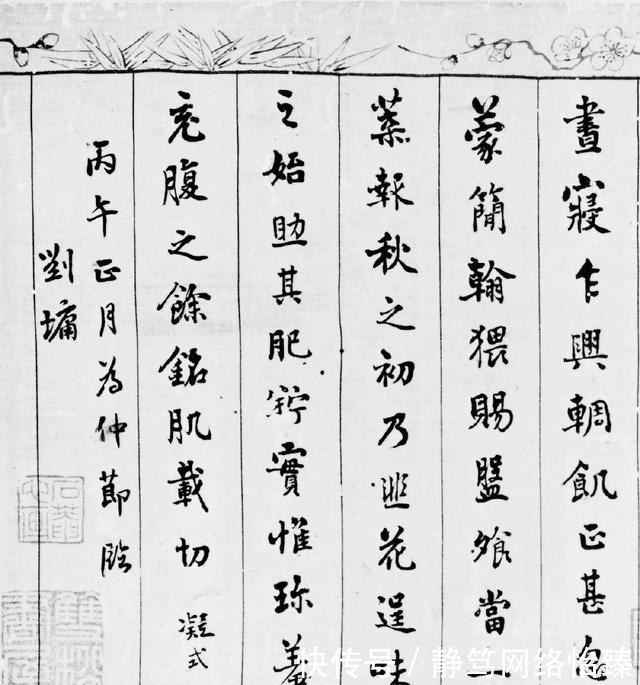 晝寢乍興輖飢正甚忽
蒙簡翰猥賜盤飧當一
葉報秋之初乃韭花逞味
之始助其肥羜實惟珍羞
充腹之餘銘肌載切 凝式
丙午正月為仲節臨
劉墉
快传号/静笃网络怡臻